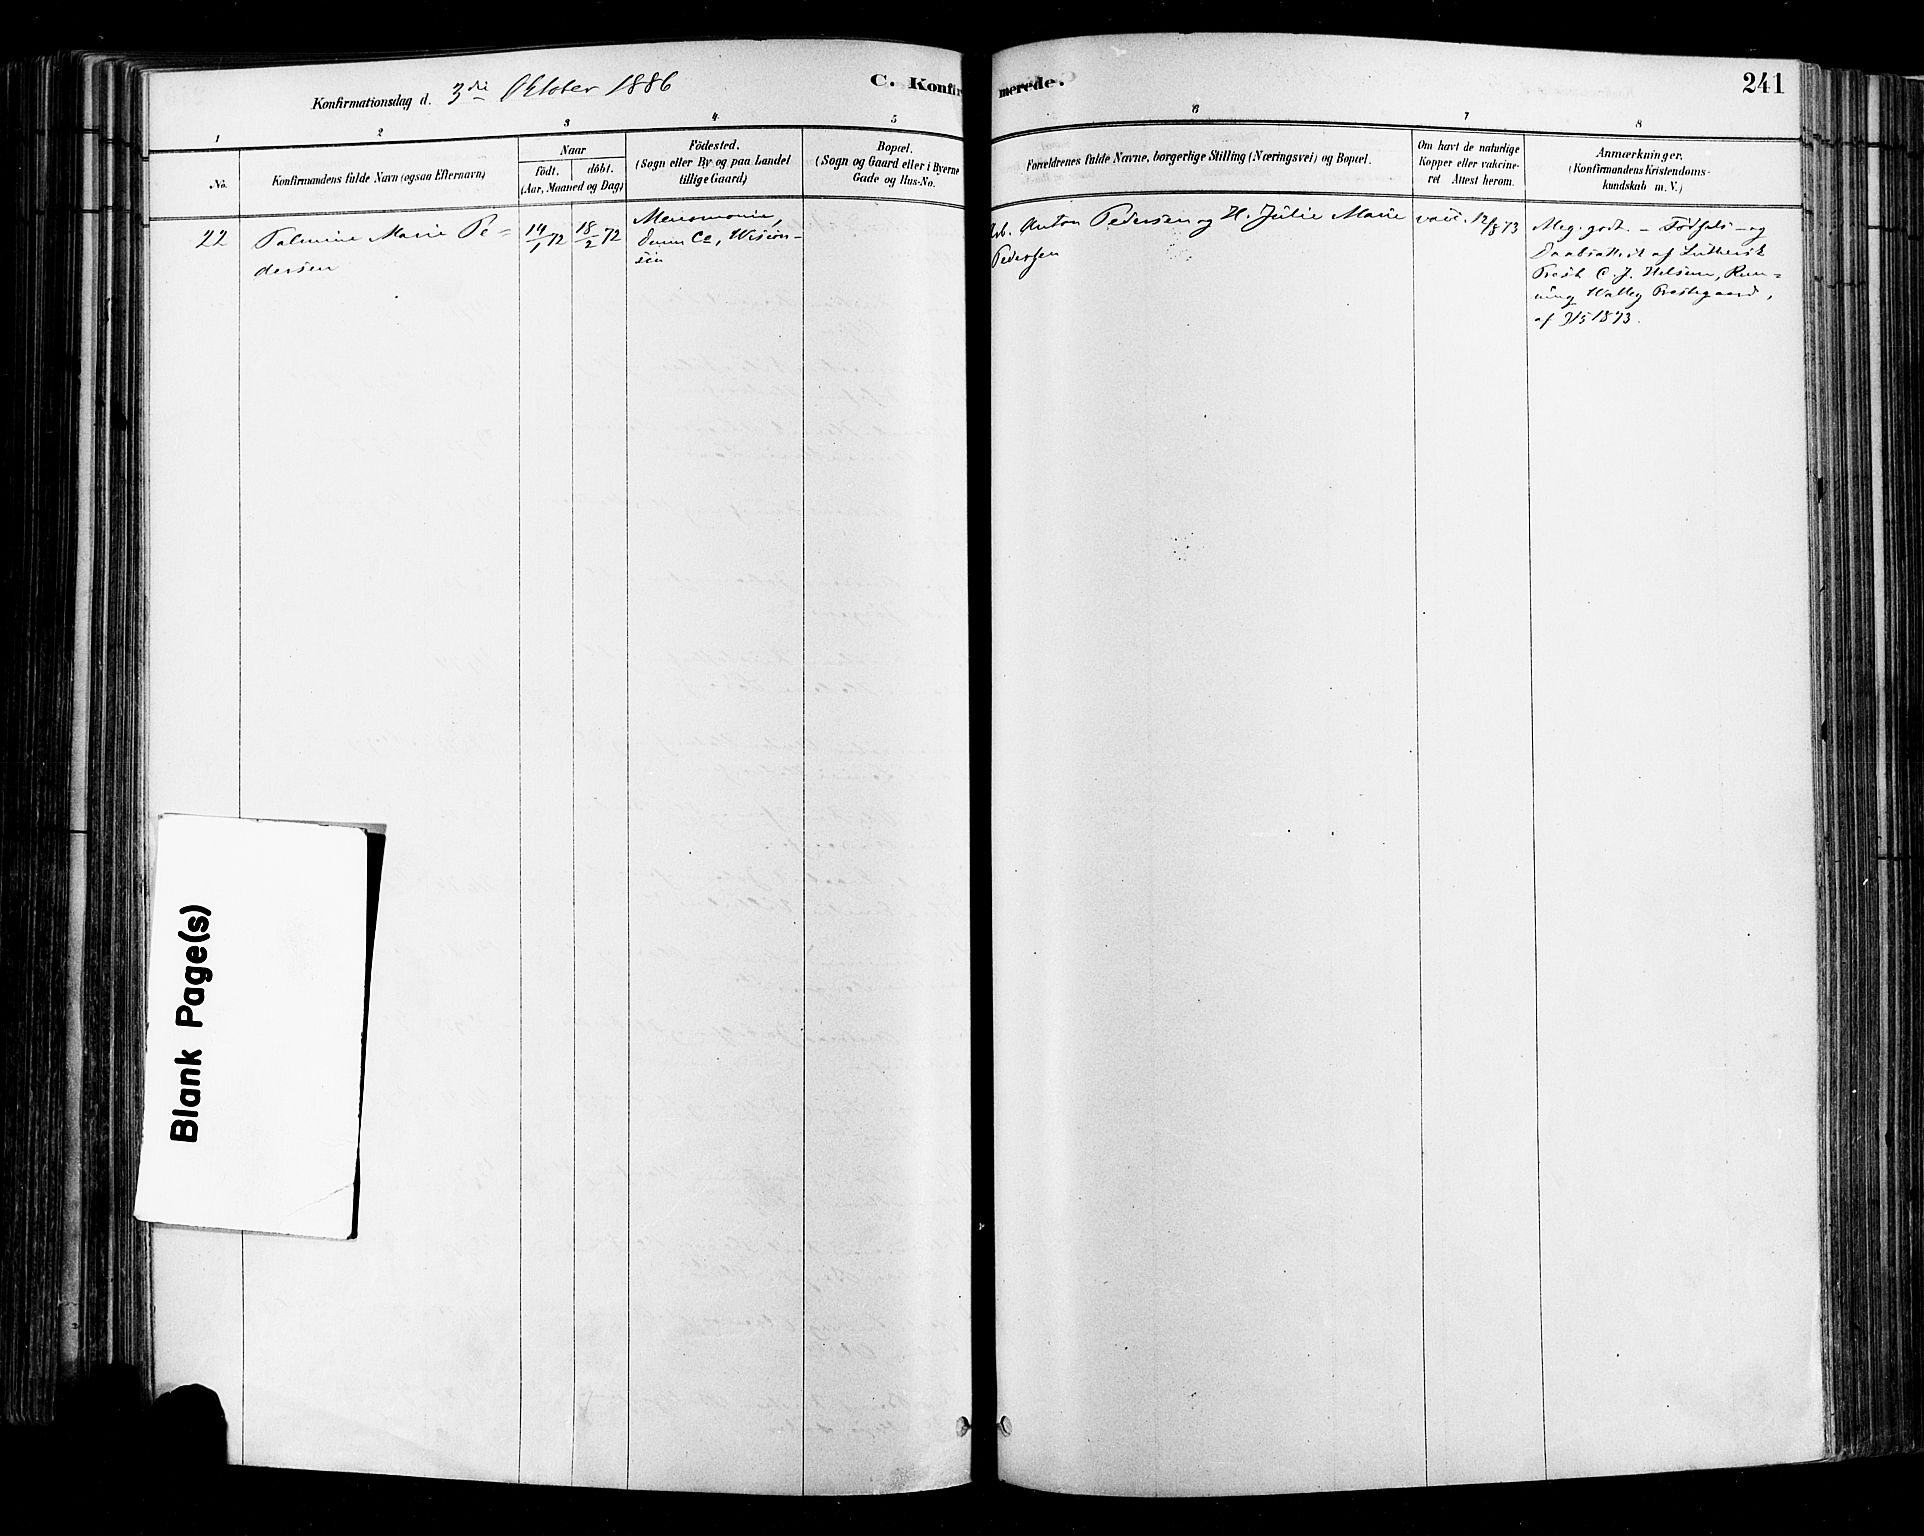 Konfirmationsdag d. 3die Oktober 1886
C. Konfirmerede.
241
1
2
3
4
5
6
7
8
No.
Konfirmandens fulde Navn (ogsaa Efternavn)
Naar
födt.
döbt.
(Aar, Maaned og Dag)
Födested.
(Sogn eller By og paa Landet
tillige Gaard)
Bopæl.
(Sogn og Gaard eller i Byerne
Gade og Hus-No.
Forældrenes fulde Navne, borgerlige Stilling (Næringsvei) og Bopæl.
Om havt de naturlige
Kopper eller vakcine-
ret Attest herom.
Anmærkninger.
(Konfirmandens Kristendoms-
kundskab m. V.)
22
Palmine Marie Pe-
dersen
14/1 72
18/2 72
Menomonie,
Dunn Co, Wiscon-
sin
Arb. Anton Pedersen og H. Julie Marie
Pedersen
vacc. 12/8 73
Meg. godt. – Fødsels- og
Daabsattest af Luthersk
Prest C. J. Helsem, Run-
ning Walley Prestegaard,
af 9/5 1873.
Blank Page(s)